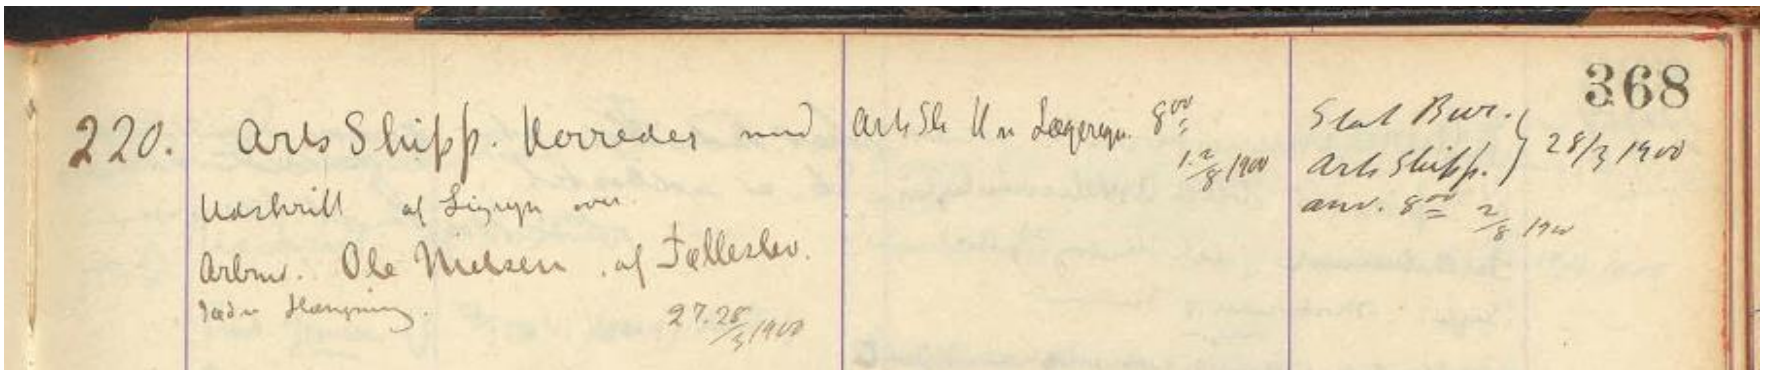 368
220. Arts Skipp. Horreder med
Udskrift af Ligsyn over
Arbmd. Ole Nielsen, af Tølleslev.
død v Hængning.
27.28/3 1900
Arts Sk Lægeregn. 8 00
2/8 1900
Stat Bur.
Arts Skipp. 28/3 1900
anv. 8 00 2/8 1900